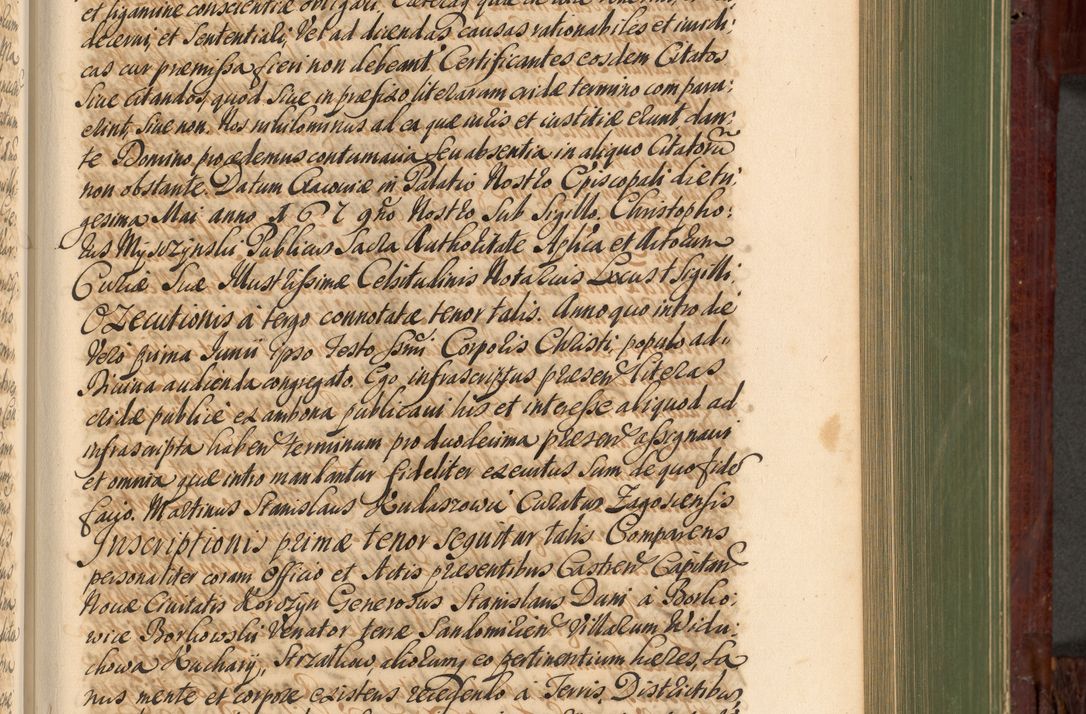 et ligamine conscientiæ obligari. Cæterasq
decerni, et Sententiali, Vel ad dicendas causas rationabiles et iuridi:
cas cur præmissa fieri non debeant. Certificantes eosdem Citatos
Siue Citandos, quod Siue in præfixo literarum cridæ termino compara:
erint, Siue non. Nos nihilominus ad ea quæ iuris et iustitiæ erunt dan:
te Domino, procedemus contumacia seu absentia in aliquo Citatorũ
non obstante. Datum Cracouiæ in Palatio Nostro Episcopali die tri:
gesima Mai anno 167 qño Nostro Sub Sigillo. Christopho:
rus Myszynski Publicus Sacra Authoritate Aplica et Actorum
Curiæ Suæ Illustrissimæ Celsitudinis Notarius Locus + Sigilli.
Exequtionis à tergo connotatæ tenor talis. Anno quo intro die
Vero prima Junii Ipso Festo ssmi Corporis Christi populo ad
Diuina audienda congregato. Ego infrascriptus præsen literas
cridæ publicæ ex ambona publicaui his et interesse aliquod ad
infrascripta haben terminum pro duodecima præsen assignaui
et omnia quæ intro mandantur fideliter executus Sum de quo fidẽ
facio. Martinus Stanislaus Kudaszowic Curatus Zagosciensis
Inscriptionis primæ tenor Sequitur talis Comparens
personaliter coram Officio et Actis præsentibus Castren Capitan
Nouæ Ciuitatis Korczyn Generosus Stanislaus Dani à Borko:
wice Borkowski Venator terræ Sandomirien Villarum Widu:
chowa Kuchary, Strzałkow aliorumq eo pertinentium hæres, Sa
nus mente et corpore existens recedendo à Terris, Districtibus,